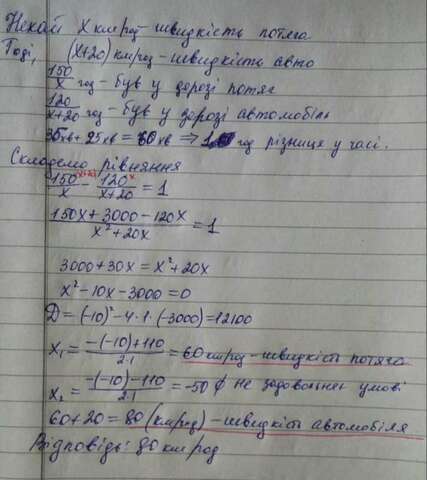 Нехай x км/год - швидкість потяга
Тоді, (x+20) км/год - швидкість авто
150/x год - був у дорозі потяг
120/(x+20) год - був у дорозі автомобіль
35хв + 25хв = 60 хв ⇒ 1 год різниця у часі.
Складемо рівняння
150/x (x+20) - 120/(x+20) x = 1
(150x + 3000 - 120x)/(x² + 20x) = 1
3000 + 30x = x² + 20x
x² - 10x - 3000 = 0
D = (-10)² - 4·1·(-3000) = 12100
x₁ = (-(-10)+110)/(2·1) = 60 км/год - швидкість потяга
x₂ = (-(-10)-110)/(2·1) = -50 ∉ не задовольняє умові
60 + 20 = 80 (км/год) - швидкість автомобіля
Відповідь: 80 км/год